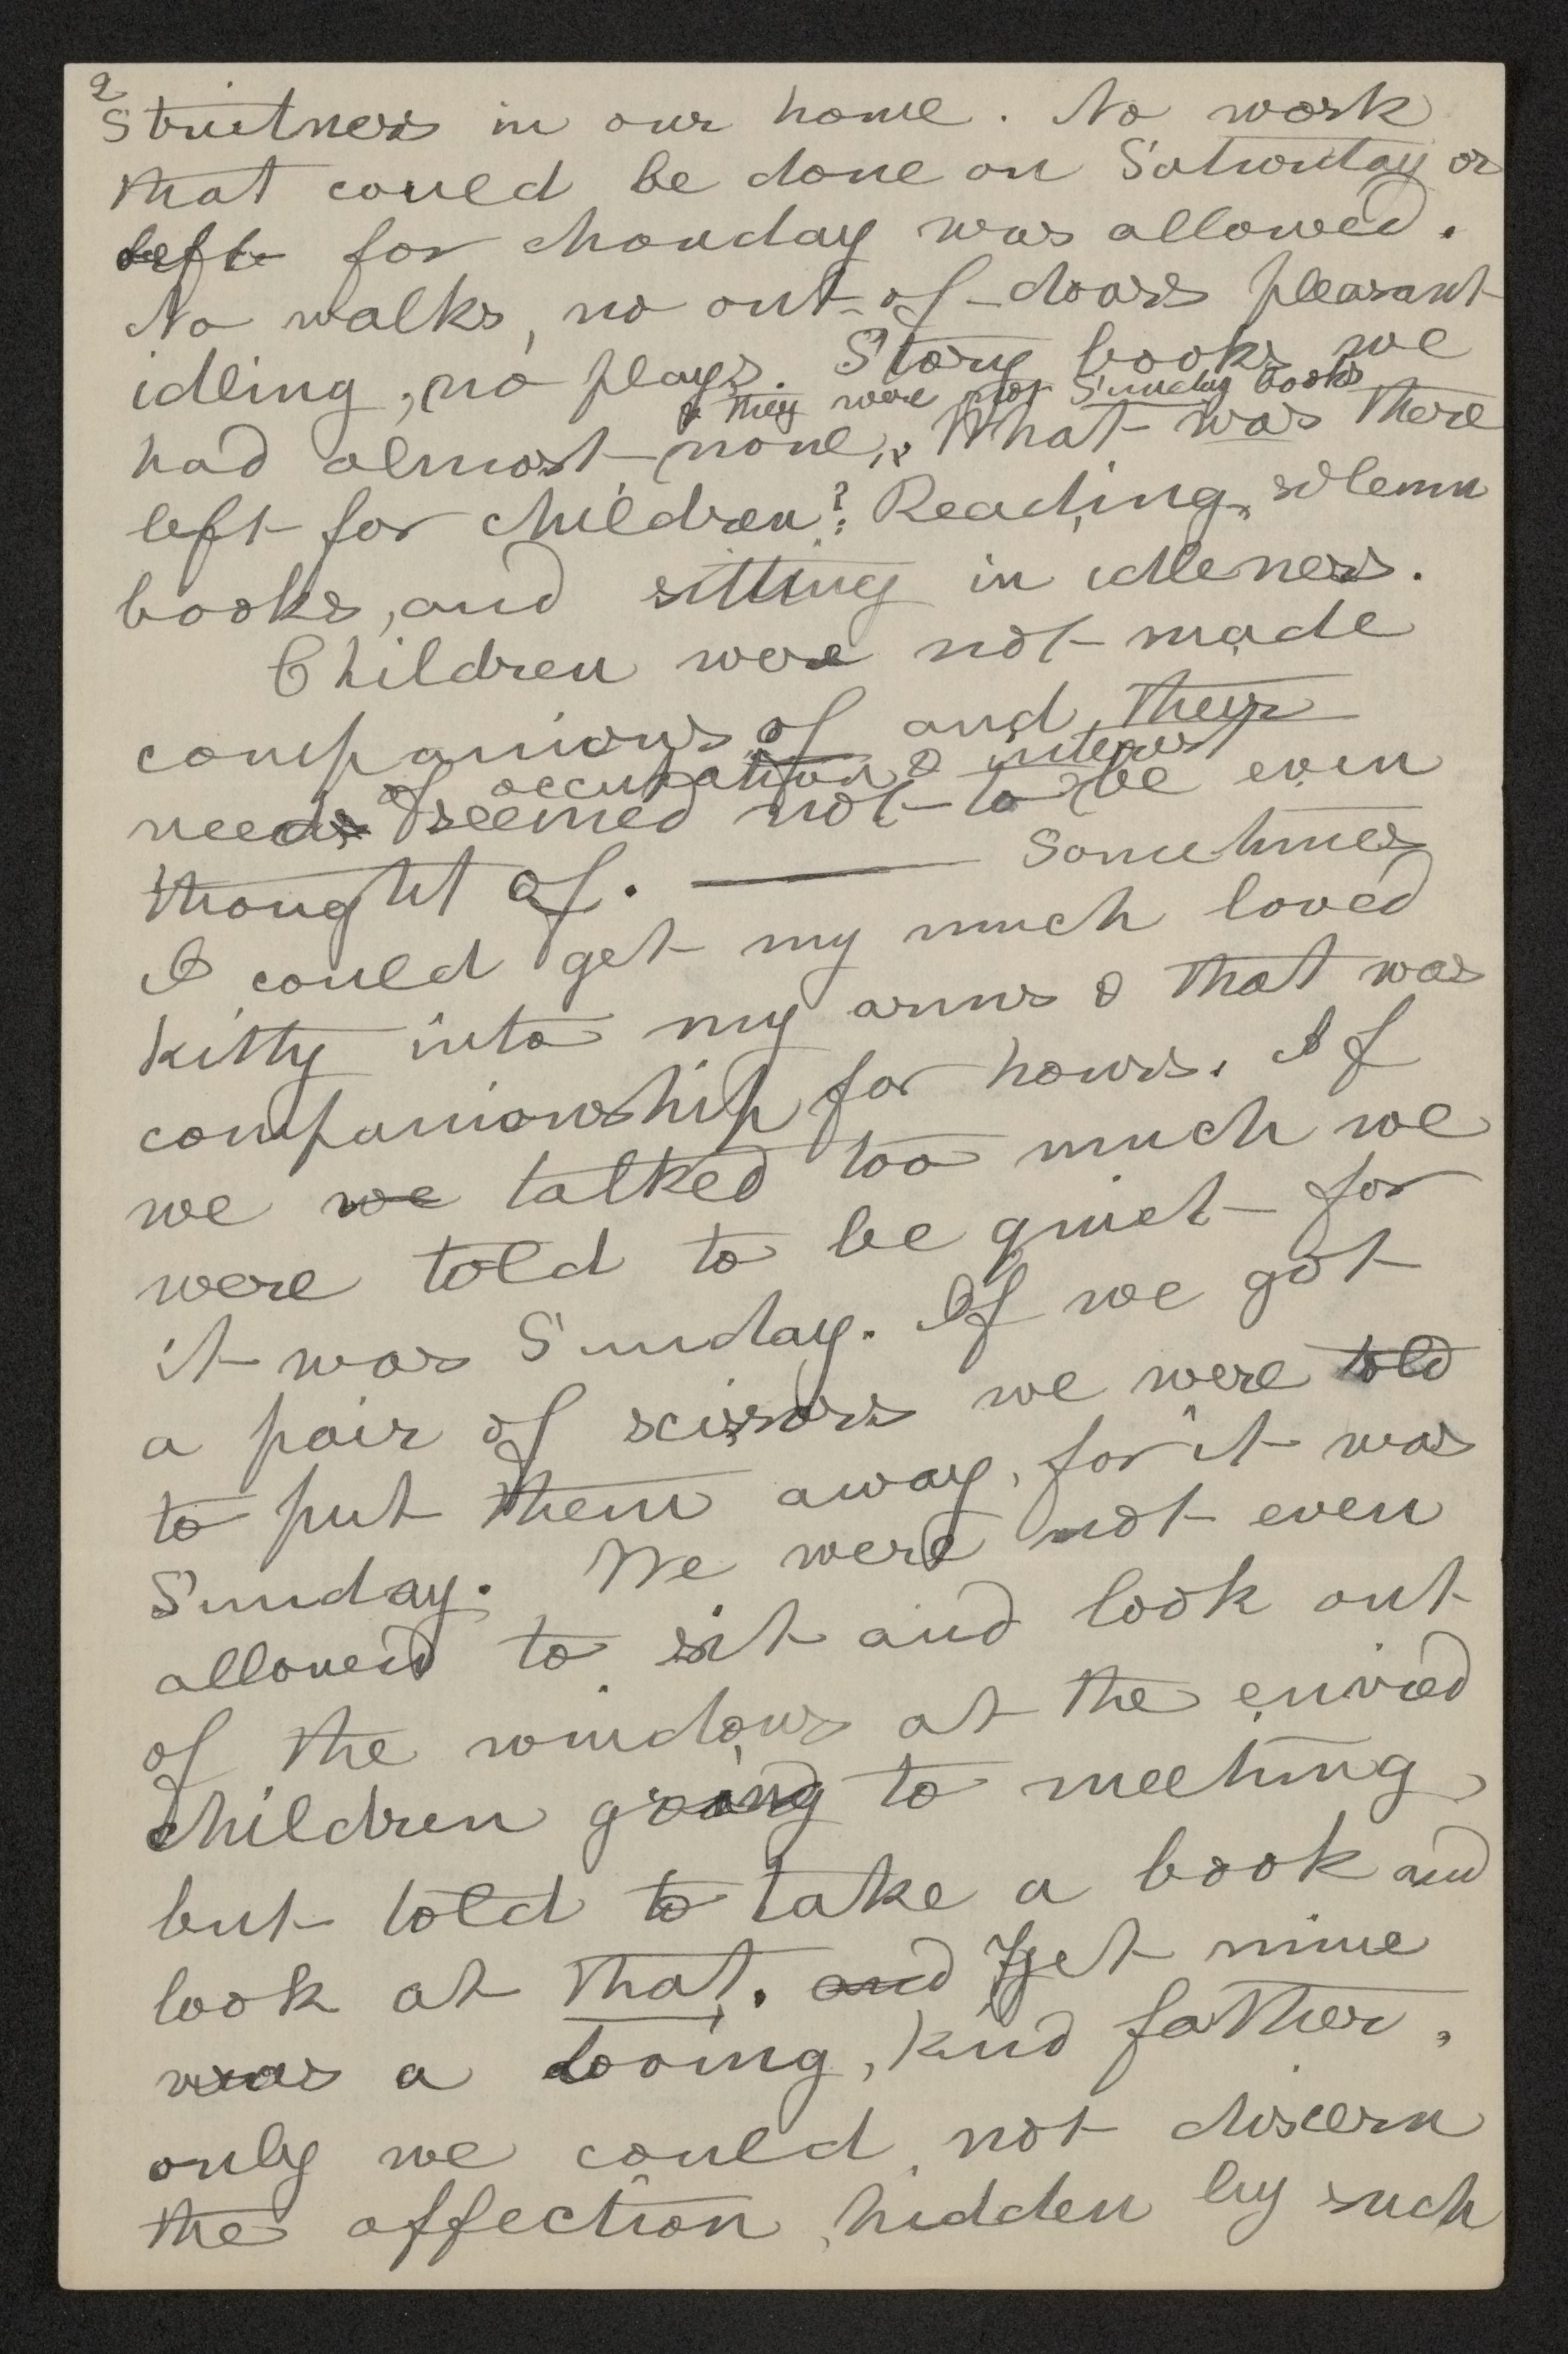 2
Strictness in our home. No work
that could be done on Saturday or
left for Monday was allowed.
No walks, no out-of-doors pleasant
idling, no plays. Story books we
& they were not Sunday books
had almost none, What was there
left for children? Reading, solemn
books, and sitting in idleness.
Children were not made
companions of and their
of occupation & interest
needs seemed not to be even
thought of. — Sometimes
I could get my much loved
kitty into my arms & that was
companionship for hours. If
we we talked too much we
were told to be quiet for
it was Sunday. If we got
a pair of scissors we were told
to put them away, for it was
Sunday. We were not even
allowed to sit and look out
of the windows at the envied
children going to meeting,
but told to take a book and
look at that. and Yet mine
was a loving, kind father,
only we could not discern
the affection, hidden by such